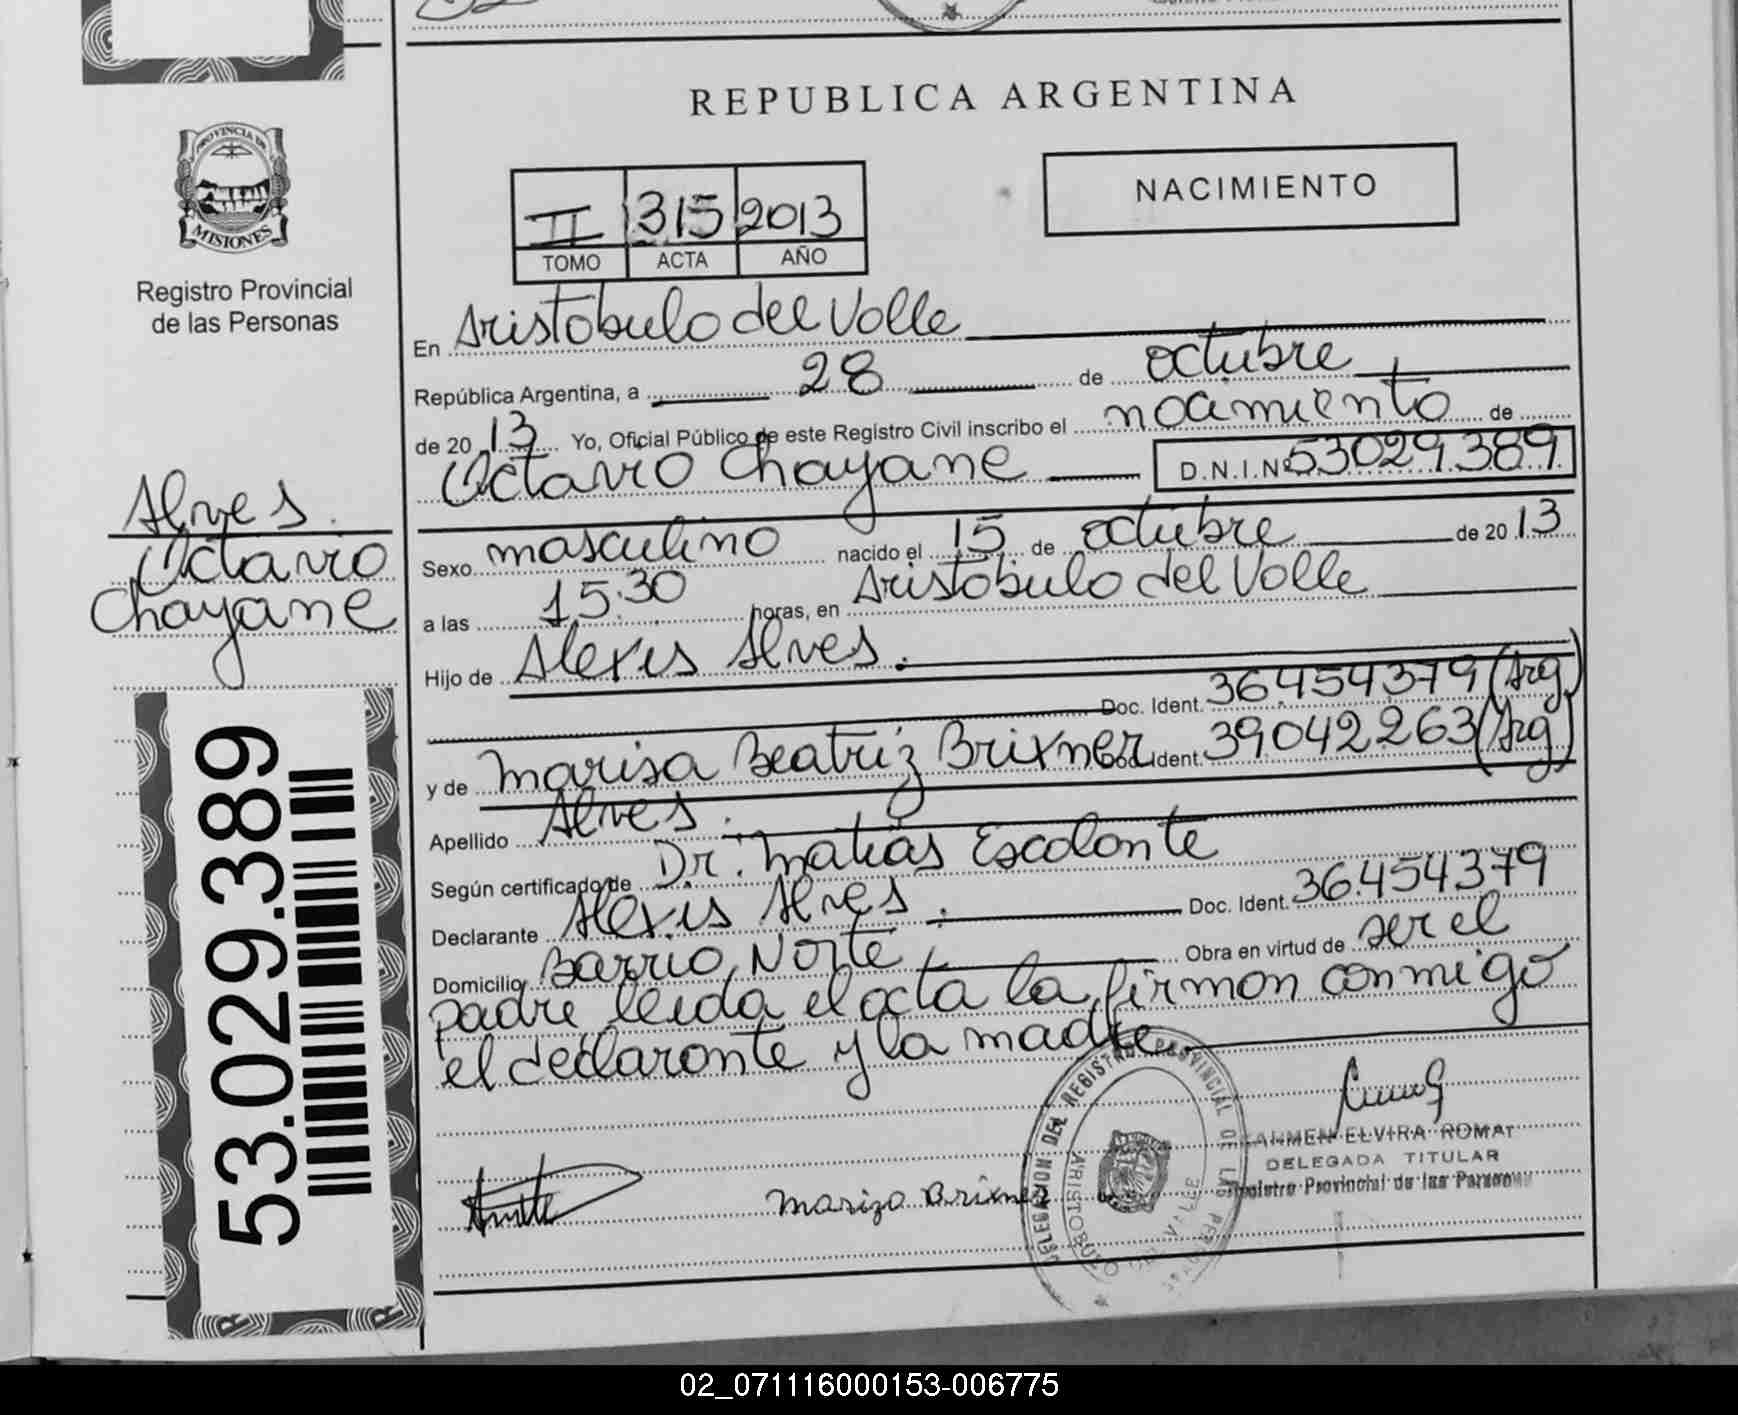 REPUBLICA ARGENTINA
PROVINCIA DE
MISIONES
Registro Provincial
de las Personas
NACIMIENTO
II 315 2013
TOMO ACTA AÑO
En Aristobulo del Valle
República Argentina, a 28 de octubre
de 20 13 Yo, Oficial Público de este Registro Civil inscribo el nacimiento de
Octavio Chayane D.N.I.Nº 53029.389
Alves
Octavio
Chayane
Sexo masculino nacido el 15 de octubre de 20 13
a las 15:30 horas, en Aristobulo del Valle
Hijo de Alexis Alves.
Doc. Ident. 36.454379 (Arg)
y de Marisa Beatriz Brixner Doc. Ident. 39.042.263 (Arg)
Apellido Alves.
Según certificado de Dr. Matias Escalante
Declarante Alexis Alves. Doc. Ident. 36.454379
Domicilio Barrio Norte Obra en virtud de ser el
padre leida el acta la firman conmigo
el declarante y la madre
53.029.389
Mariza Brixner
DELEGACION DEL REGISTRO PROVINCIAL DE LAS PERSONAS
ARISTOBULO DEL VALLE
CARMEN ELVIRA ROMAT
DELEGADA TITULAR
Registro Provincial de las Personas
02_071116000153-006775